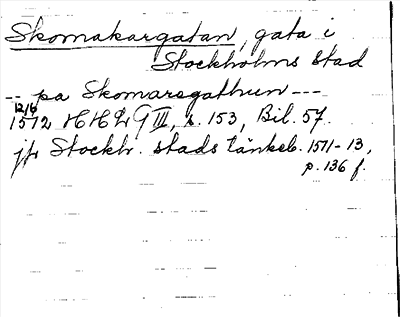 Skomakargatan, gata i
Stockholms stad
-- på Skomaregathun ---
12/6
1572 HHL G III, s. 153, Bil. 57.
jfr Stockh. stads tänkeb. 1511-13,
p. 136 f.